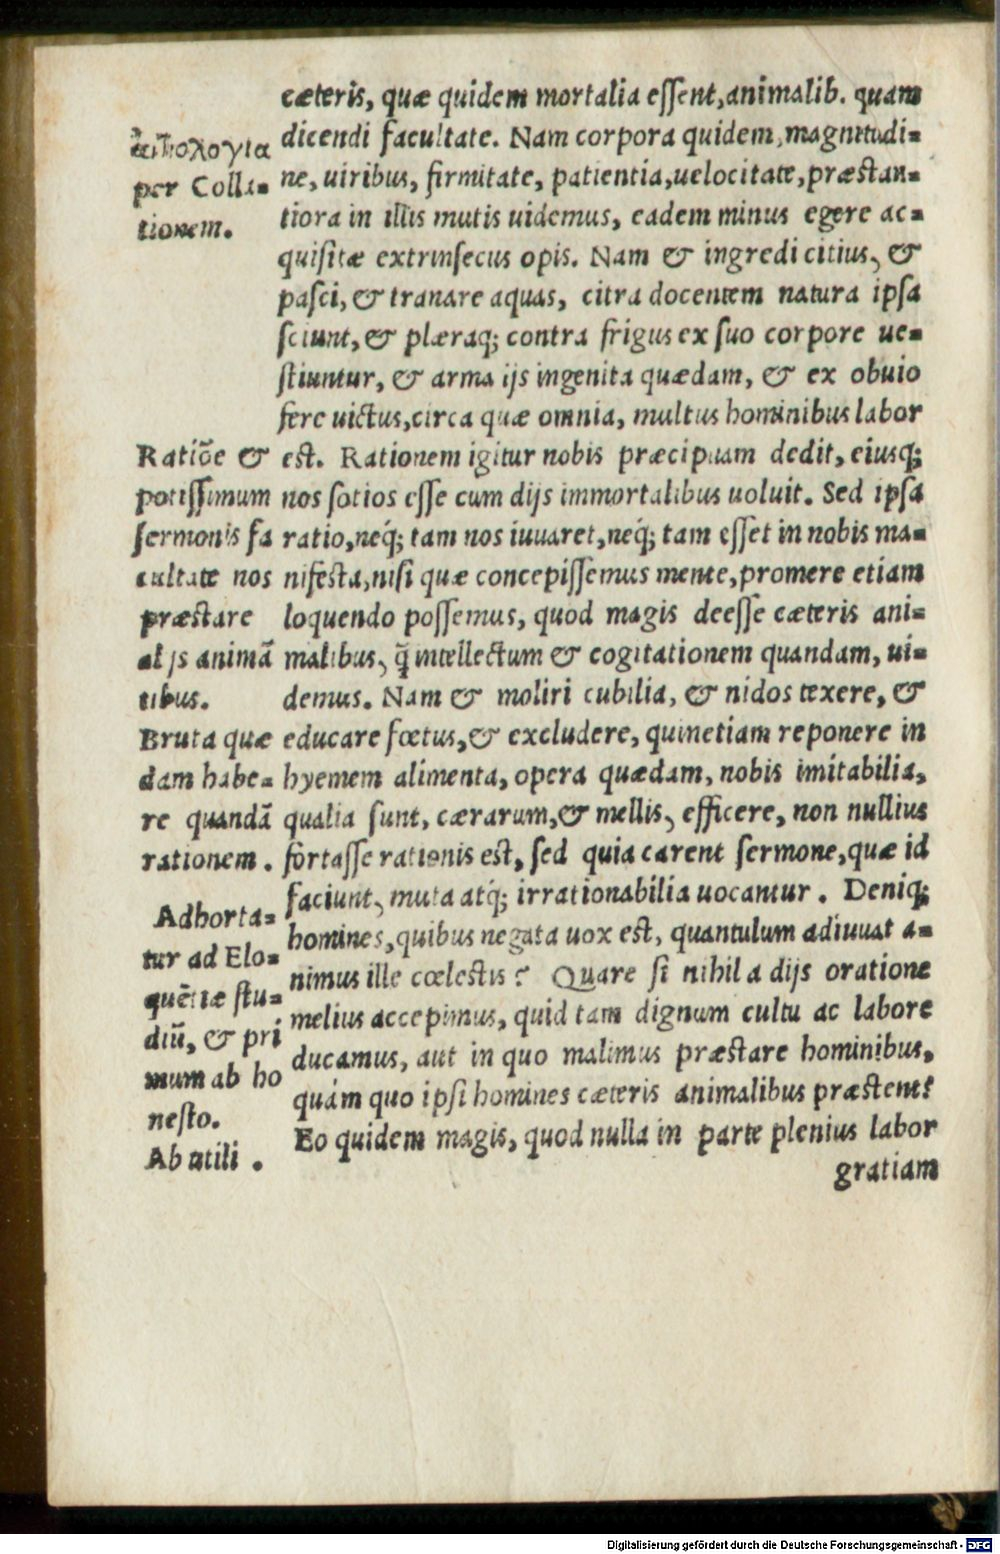 cæteris, quæ quidem mortalia essent, animalib. quam
dicendi facultate. Nam corpora quidem, magnitudi=
ne, uiribus, firmitate, patientia, uelocitate, præstan=
tiora in illis mutis uidemus, eadem minus egere ac=
quisitæ extrinsecus opis. Nam & ingredi citius, &
pasci, & tranare aquas, citra docentem natura ipsa
sciunt, & plæraq; contra frigus ex suo corpore ue=
stiuntur, & arma ijs ingenita quædam, & ex obuio
fere uictus, circa quæ omnia, multus hominibus labor
est. Rationem igitur nobis præcipuam dedit, eiusq;
nos sotios esse cum dijs immortalibus uoluit. Sed ipsa
ratio, neq́; tam nos iuuaret, neq́; tam esset in nobis ma=
nifesta, nisi quæ concepissemus mente, promere etiam
loquendo possemus, quod magis deesse cæteris ani=
malibus, q̃ intellectum & cogitationem quandam, ui=
demus. Nam & moliri cubilia, & nidos texere, &
educare fœtus, & excludere, quinetiam reponere in
hyemem alimenta, opera quædam, nobis imitabilia,
qualia sunt, cærarum, & mellis, efficere, non nullius
fortasse rationis est, sed quia carent sermone, quæ id
faciunt, muta atq́; irrationabilia uocantur. Deniq;
homines, quibus negata uox est, quantulum adiuuat a=
nimus ille cœlestis? Quare si nihil a dijs oratione
melius accepimus, quid tam dignum cultu ac labore
ducamus, aut in quo malimus præstare hominibus,
quám quo ipsi homines cæteris animalibus præstent?
Eo quidem magis, quod nulla in parte plenius labor
gratiam
per Colla=
tionem.
Ratiõe &
potissimum
sermonis fa
cultate nos
præstare
alijs animã
tibus.
Bruta quæ
dam habe=
re quandã
rationem.
Adhorta=
tur ad Elo=
quẽtiæ stu=
diũ, & pri
mum ab ho
nesto.
Ab utili.
Digitalisierung gefördert durch die Deutsche Forschungsgemeinschaft - DFG